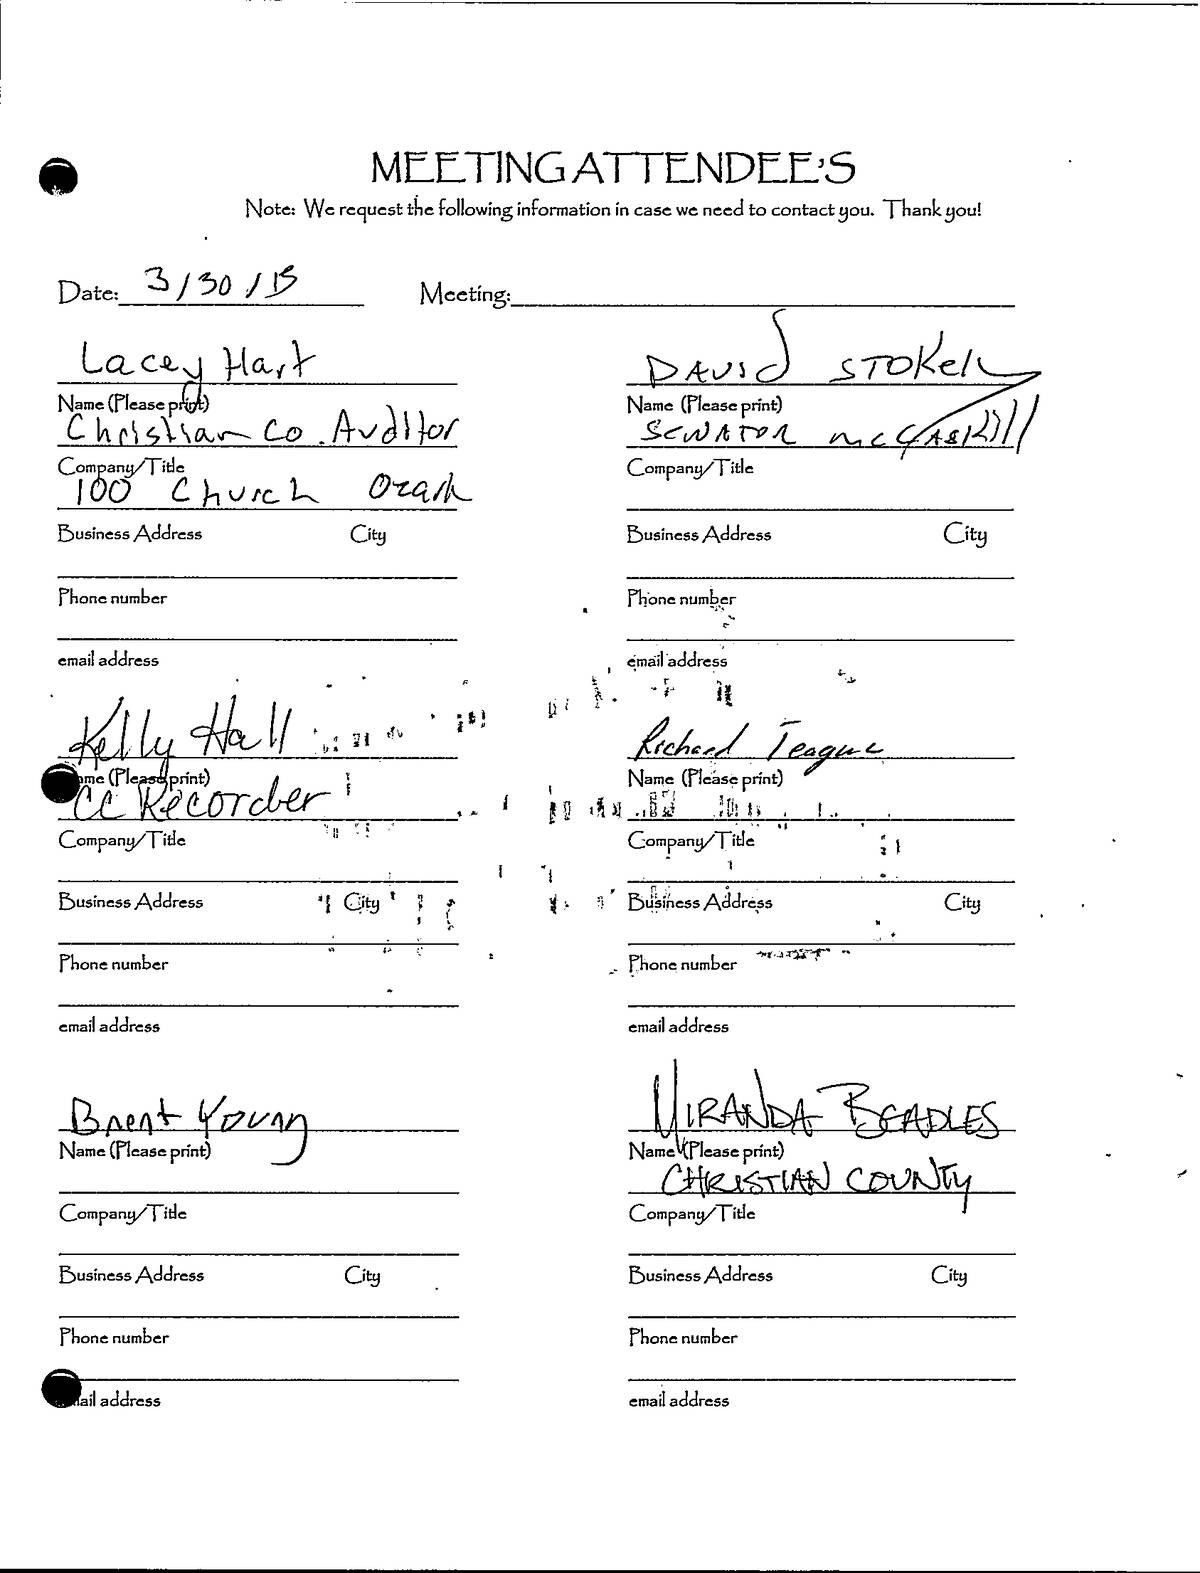 MEETING ATTENDEE'S
Note: We request the following information in case we need to contact you. Thank you!
Date: 3/30/15 Meeting:
Lacey Hart
Name (Please print)
Christian Co. Auditor
Company/Title
100 Church Ozark
Business Address City
Phone number
email address
DAVID
Name (Please print)
SENATOR McCASKILL
Company/Title
Business Address City
Phone number
email address
Kelly Hall
(Please print)
CC Recorder
Company/Title
Business Address City
Phone number
email address
Richard Teague
Name (Please print)
Company/Title
Business Address City
Phone number
email address
Brent Young
Name (Please print)
Company/Title
Business Address City
Phone number
address
MIRANDA BEADLES
Name (Please print)
CHRISTIAN COUNTY
Company/Title
Business Address City
Phone number
email address